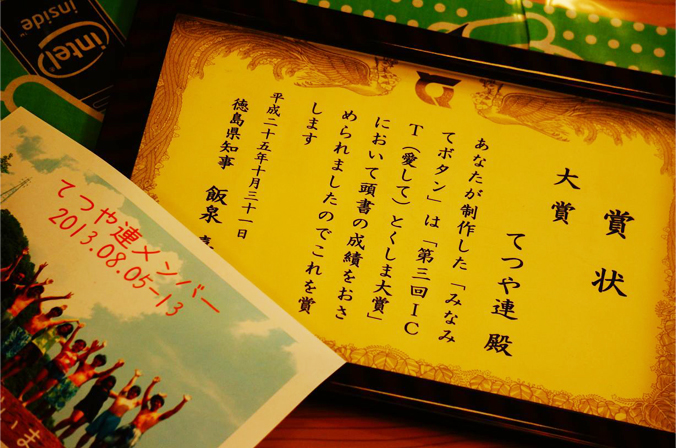 賞状
大賞
てつや連 殿
あなたが制作した「みなみ
てボタン」は「第三回IC
T(愛して)とくしま大賞」
において頭書の成績をおさ
められましたのでこれを賞
します
平成二十五年十月三十一日
徳島県知事 飯泉
intel
inside
てつや連メンバー
2013.08.05-13